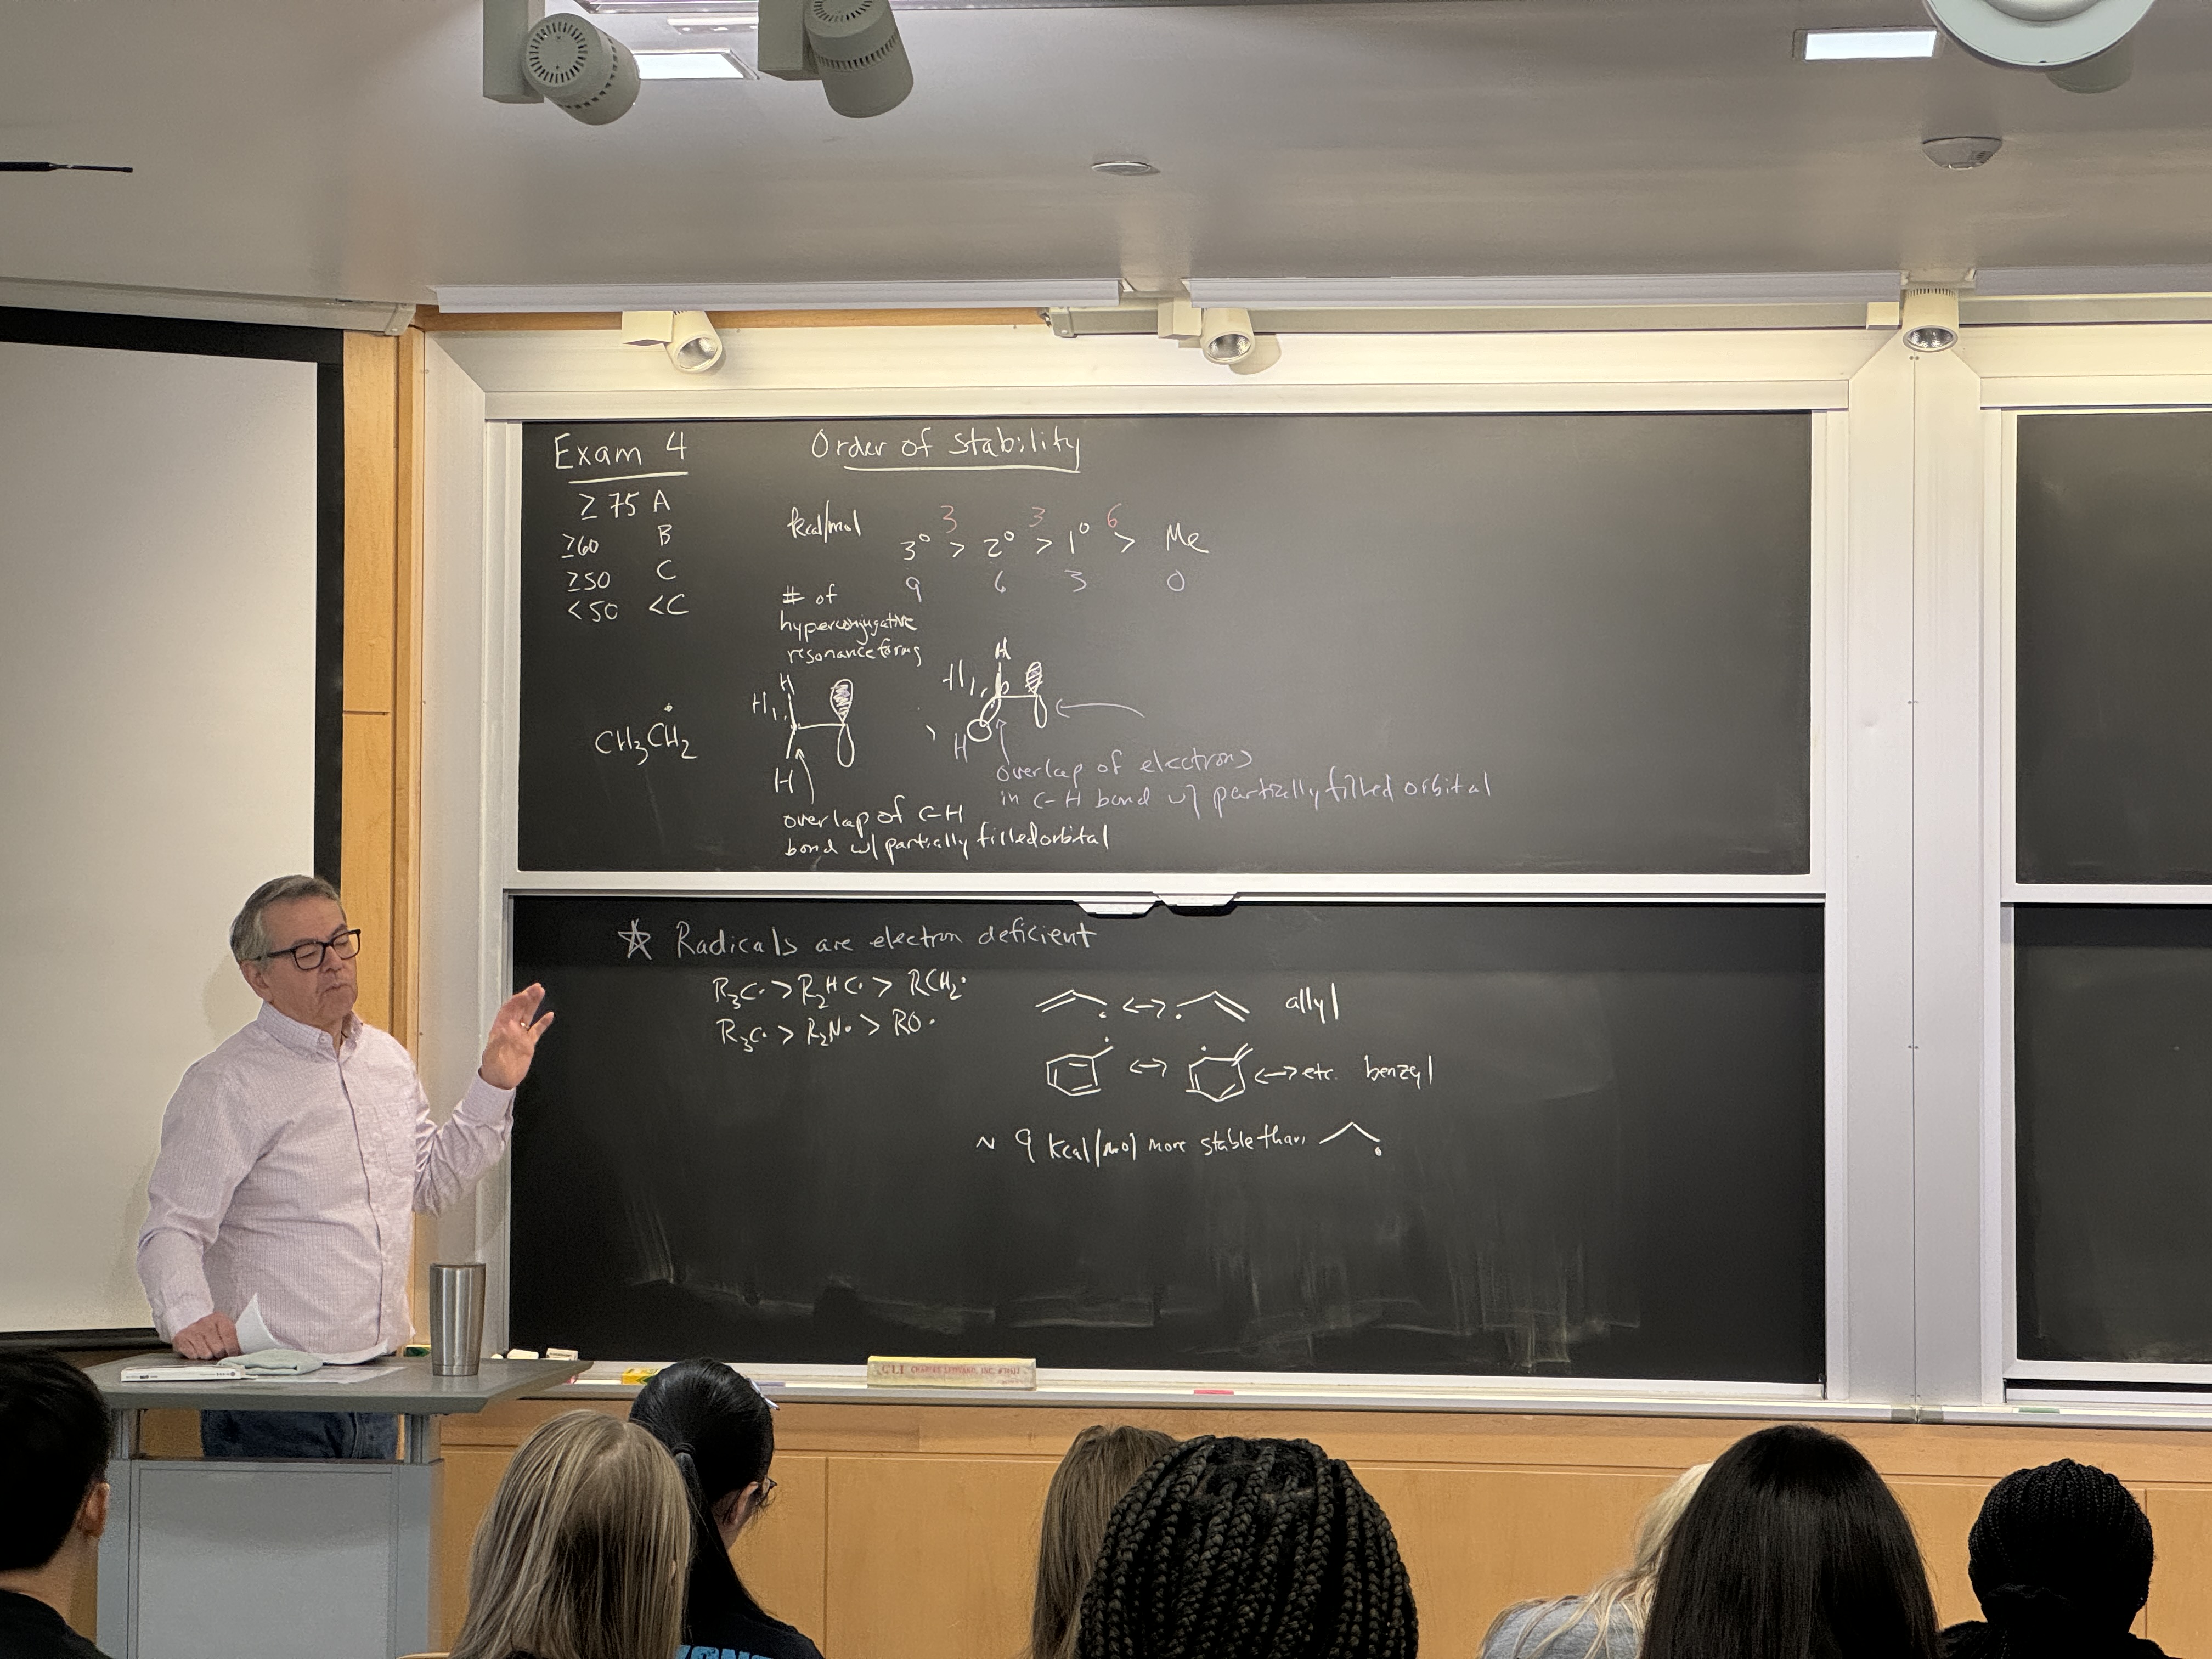 Exam 4
≥ 75 A
≥60 B
≥50 C
<50 <C
Order of Stability
kcal/mol
3 3 6
3° > 2° > 1° > Me
9 6 3 0
# of
hyperconjugative
resonance forms
CH3CH2
H
H
H
overlap of C-H
bond w/ partially filled orbital
,
H
H
H
overlap of electrons
in C-H bond w/ partially filled orbital
☆ Radicals are electron deficient
R3C· > R2HC· > RCH2·
R3C· > R2N· > RO·
<-> allyl
<-> <-> etc. benzyl
~ 9 kcal/mol more stable than
CHARLES LEONARD, INC.